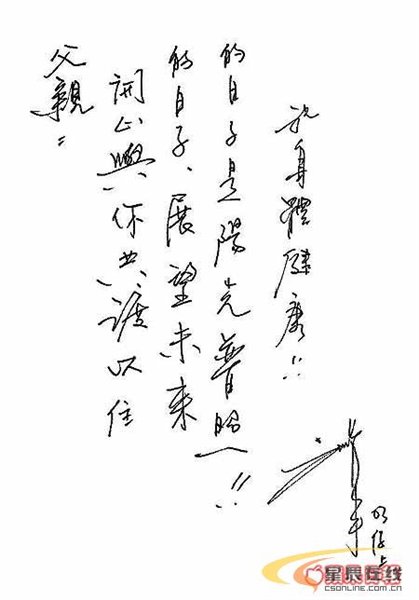 父親：
開心與你共渡以住
的日子、展望未來
的日子是陽光普照！！
祝身體健康！！
明仔上
星辰在线
csonline.com.cn